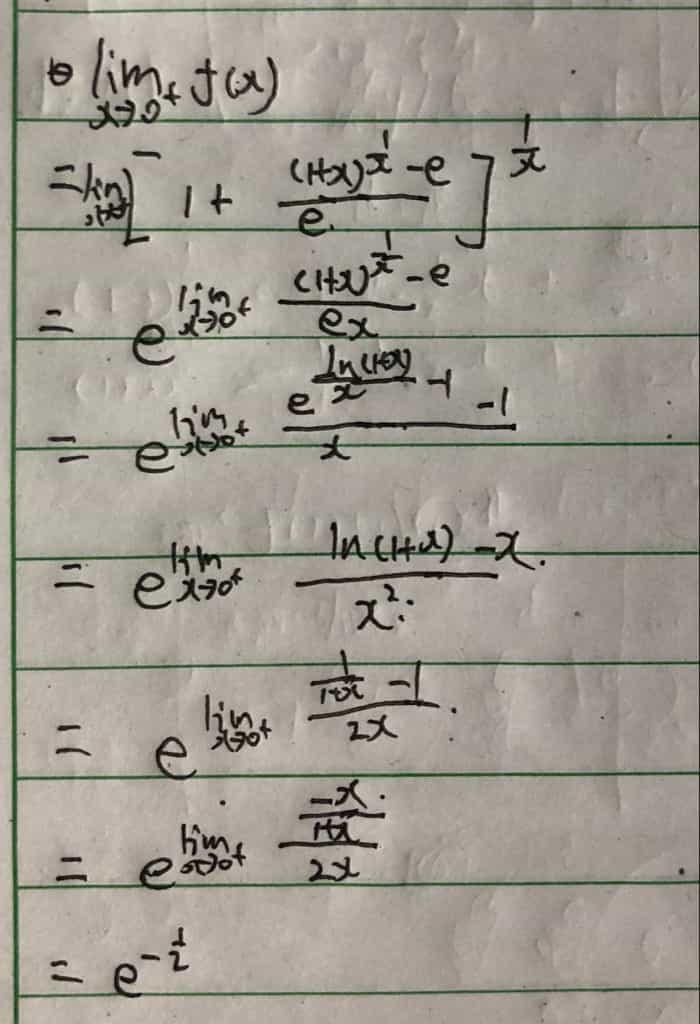 ① lim_{x→0⁺} f(x)
= lim_{x→0⁺} [ 1 + \frac{(1+x)^{\frac{1}{x}} - e}{e} ]^{\frac{1}{x}}
= e^{lim_{x→0⁺} \frac{(1+x)^{\frac{1}{x}} - e}{ex}}
= e^{lim_{x→0⁺} \frac{e^{\frac{ln(1+x)}{x} - 1} - 1}{x}}
= e^{lim_{x→0⁺} \frac{ln(1+x) - x}{x^2}}
= e^{lim_{x→0⁺} \frac{\frac{1}{1+x} - 1}{2x}}
= e^{lim_{x→0⁺} \frac{\frac{-x}{1+x}}{2x}}
= e^{-\frac{1}{2}}